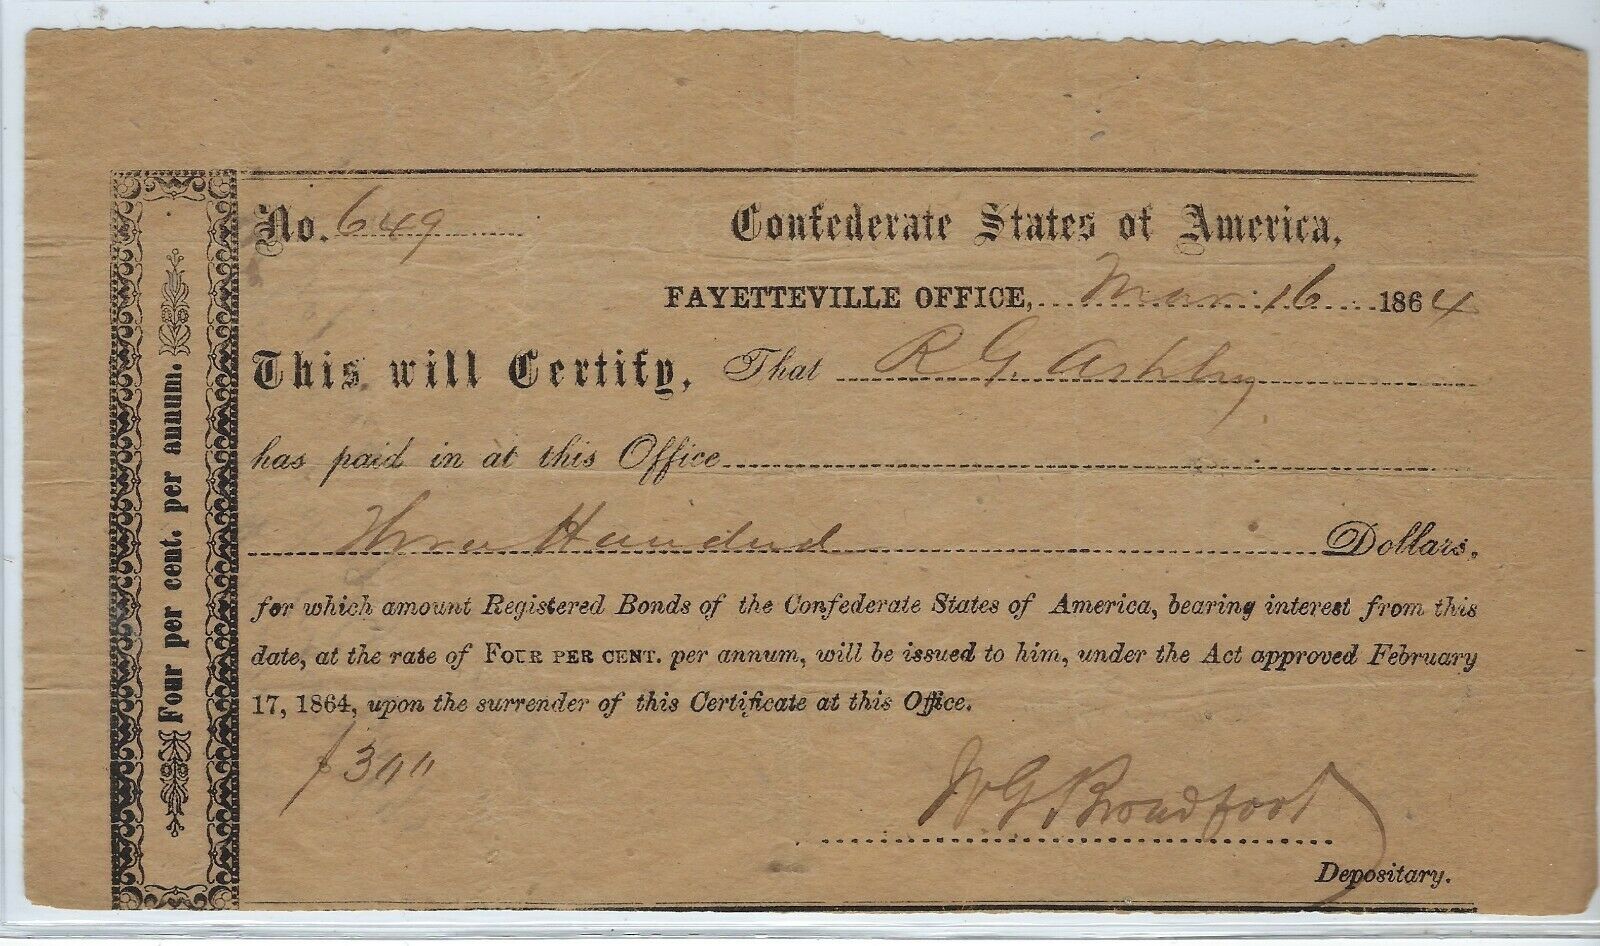 Four per cent. per annum.
No. 649
Confederate States of America,
FAYETTEVILLE OFFICE, Mar 16 1864
This will Certify, That R G. Ashley
has paid in at this Office
Three Hundred Dollars,
for which amount Registered Bonds of the Confederate States of America, bearing interest from this
date, at the rate of FOUR PER CENT. per annum, will be issued to him, under the Act approved February
17, 1864, upon the surrender of this Certificate at this Office.
$300
W G Broadfoot
Depositary.